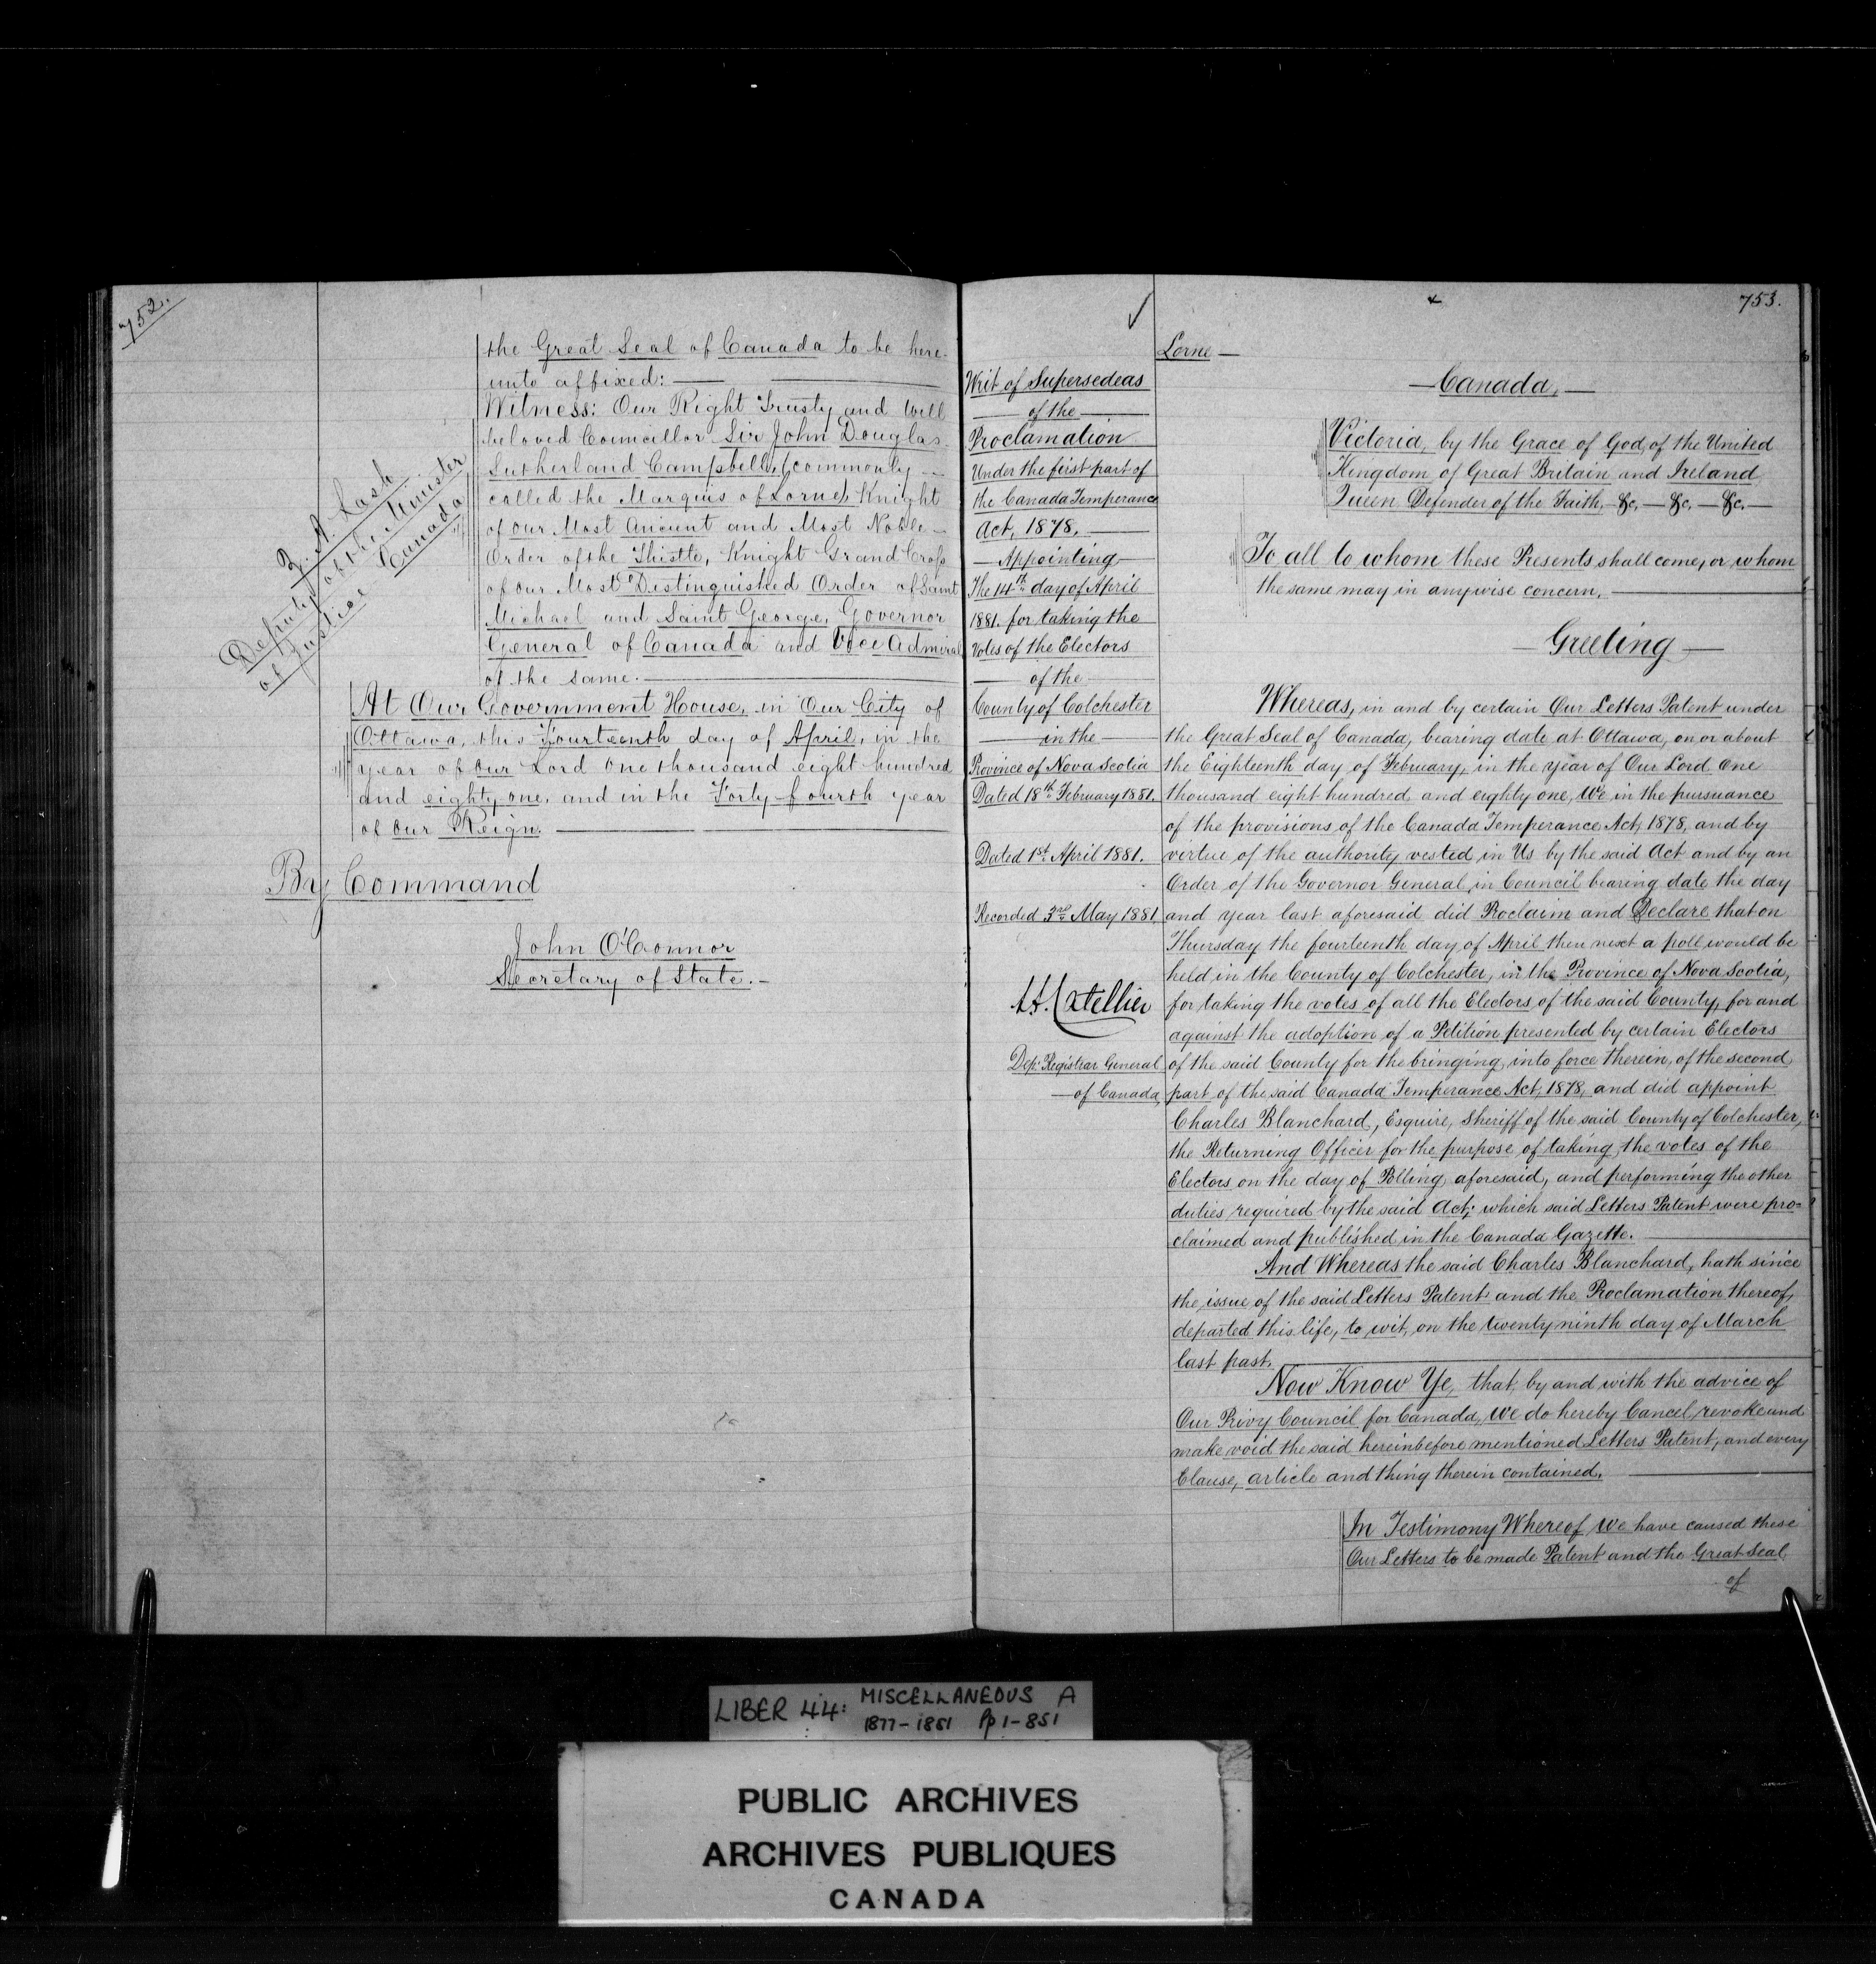 752.
the Great Seal of Canada to be here-
unto affixed:
Witness: Our Right Trusty and Well
beloved Councillor Sir John Douglas
Sutherland Campbell, (commonly
called the Marquis of Lorne) Knight
of our Most Ancient and Most Noble
Order of the Thistle, Knight Grand Cross
of our Most Distinguished Order of Saint
Michael and Saint George, Governor
General of Canada and Vice Admiral
of the same.
Z. A. Lash
Deputy of the Minister
of Justice Canada
At Our Government House, in Our City of
Ottawa, this Fourteenth day of April, in the
year of Our Lord One thousand eight hundred
and eighty one, and in the Forty-fourth year
of Our Reign.
By Command
John O'Connor
Secretary of State.
753.
Lorne
Writ of Supersedeas
of the
Proclamation
Under the first part of
the Canada Temperance
Act, 1878,
Appointing
The 14th day of April
1881. for taking the
Votes of the Electors
of the
County of Colchester
in the
Province of Nova Scotia
Dated 18th February 1881.
Dated 1st April 1881.
Recorded 3rd May 1881
Dep. Registrar General
of Canada,
Canada,
Victoria, by the Grace of God, of the United
Kingdom of Great Britain and Ireland
Queen Defender of the Faith, &c. — &c. — &c. —
To all to whom these Presents shall come, or whom
the same may in anywise concern,
Greeting
Whereas, in and by certain Our Letters Patent under
the Great Seal of Canada, bearing date at Ottawa, on or about
the Eighteenth day of February, in the year of Our Lord One
thousand eight hundred and eighty one, We in the pursuance
of the provisions of the Canada Temperance Act, 1878, and by
virtue of the authority vested in Us by the said Act and by an
Order of the Governor General in Council bearing date the day
and year last aforesaid did Proclaim and Declare that on
Thursday the fourteenth day of April then next a poll would be
held in the County of Colchester, in the Province of Nova Scotia,
for taking the votes of all the Electors of the said County, for and
against the adoption of a Petition presented by certain Electors
of the said County for the bringing into force therein, of the second
part of the said Canada Temperance Act, 1878, and did appoint
Charles Blanchard, Esquire, Sheriff of the said County of Colchester,
the Returning Officer for the purpose of taking the votes of the
Electors on the day of Polling aforesaid, and performing the other
duties required by the said Act; which said Letters Patent were pro-
claimed and published in the Canada Gazette.
And Whereas the said Charles Blanchard, hath since
the issue of the said Letters Patent and the Proclamation thereof,
departed this life, to wit, on the twenty ninth day of March
last past.
Now Know Ye, that by and with the advice of
Our Privy Council for Canada, We do hereby Cancel, revoke and
make void the said hereinbefore mentioned Letters Patent, and every
Clause, article and thing therein contained.
In Testimony Whereof We have caused these
Our Letters to be made Patent and the Great Seal
of
LIBER 44: MISCELLANEOUS A
1877-1881 Pp 1-851
PUBLIC ARCHIVES
ARCHIVES PUBLIQUES
CANADA